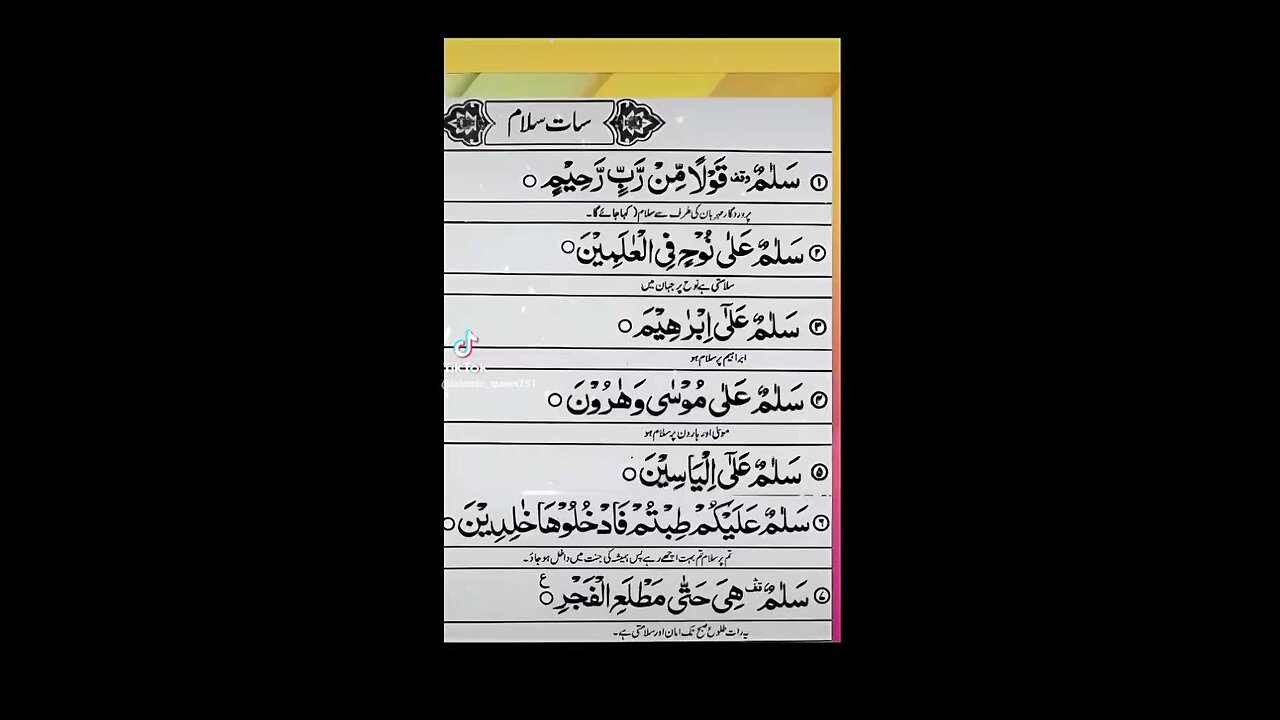 سات سلام
۱ سَلٰمٌ وقفہ قَوْلًا مِّنْ رَّبٍّ رَّحِیْمٍ ○
پروردگار مہربان کی طرف سے سلام (کہا جائے گا۔
۲ سَلٰمٌ عَلٰی نُوْحٍ فِی الْعٰلَمِیْنَ ○
سلامتی ہے نوح پر جہان میں
۳ سَلٰمٌ عَلٰٓی اِبْرٰهِیْمَ ○
ابراہیم پر سلام ہو
۴ سَلٰمٌ عَلٰی مُوْسٰی وَهٰرُوْنَ ○
موسیٰ اور ہارون پر سلام ہو
۵ سَلٰمٌ عَلٰٓی اِلْیَاسِیْنَ ○
۶ سَلٰمٌ عَلَیْکُمْ طِبْتُمْ فَادْخُلُوْهَا خٰلِدِیْنَ ○
تم پر سلام تم بہت اچھے رہے پس ہمیشہ کی جنت میں داخل ہو جاؤ۔
۷ سَلٰمٌ قف هِیَ حَتّٰی مَطْلَعِ الْفَجْرِ ○ ع
یہ رات طلوع صبح تک امان اور سلامتی ہے۔
TikTok
@islamic_queen751